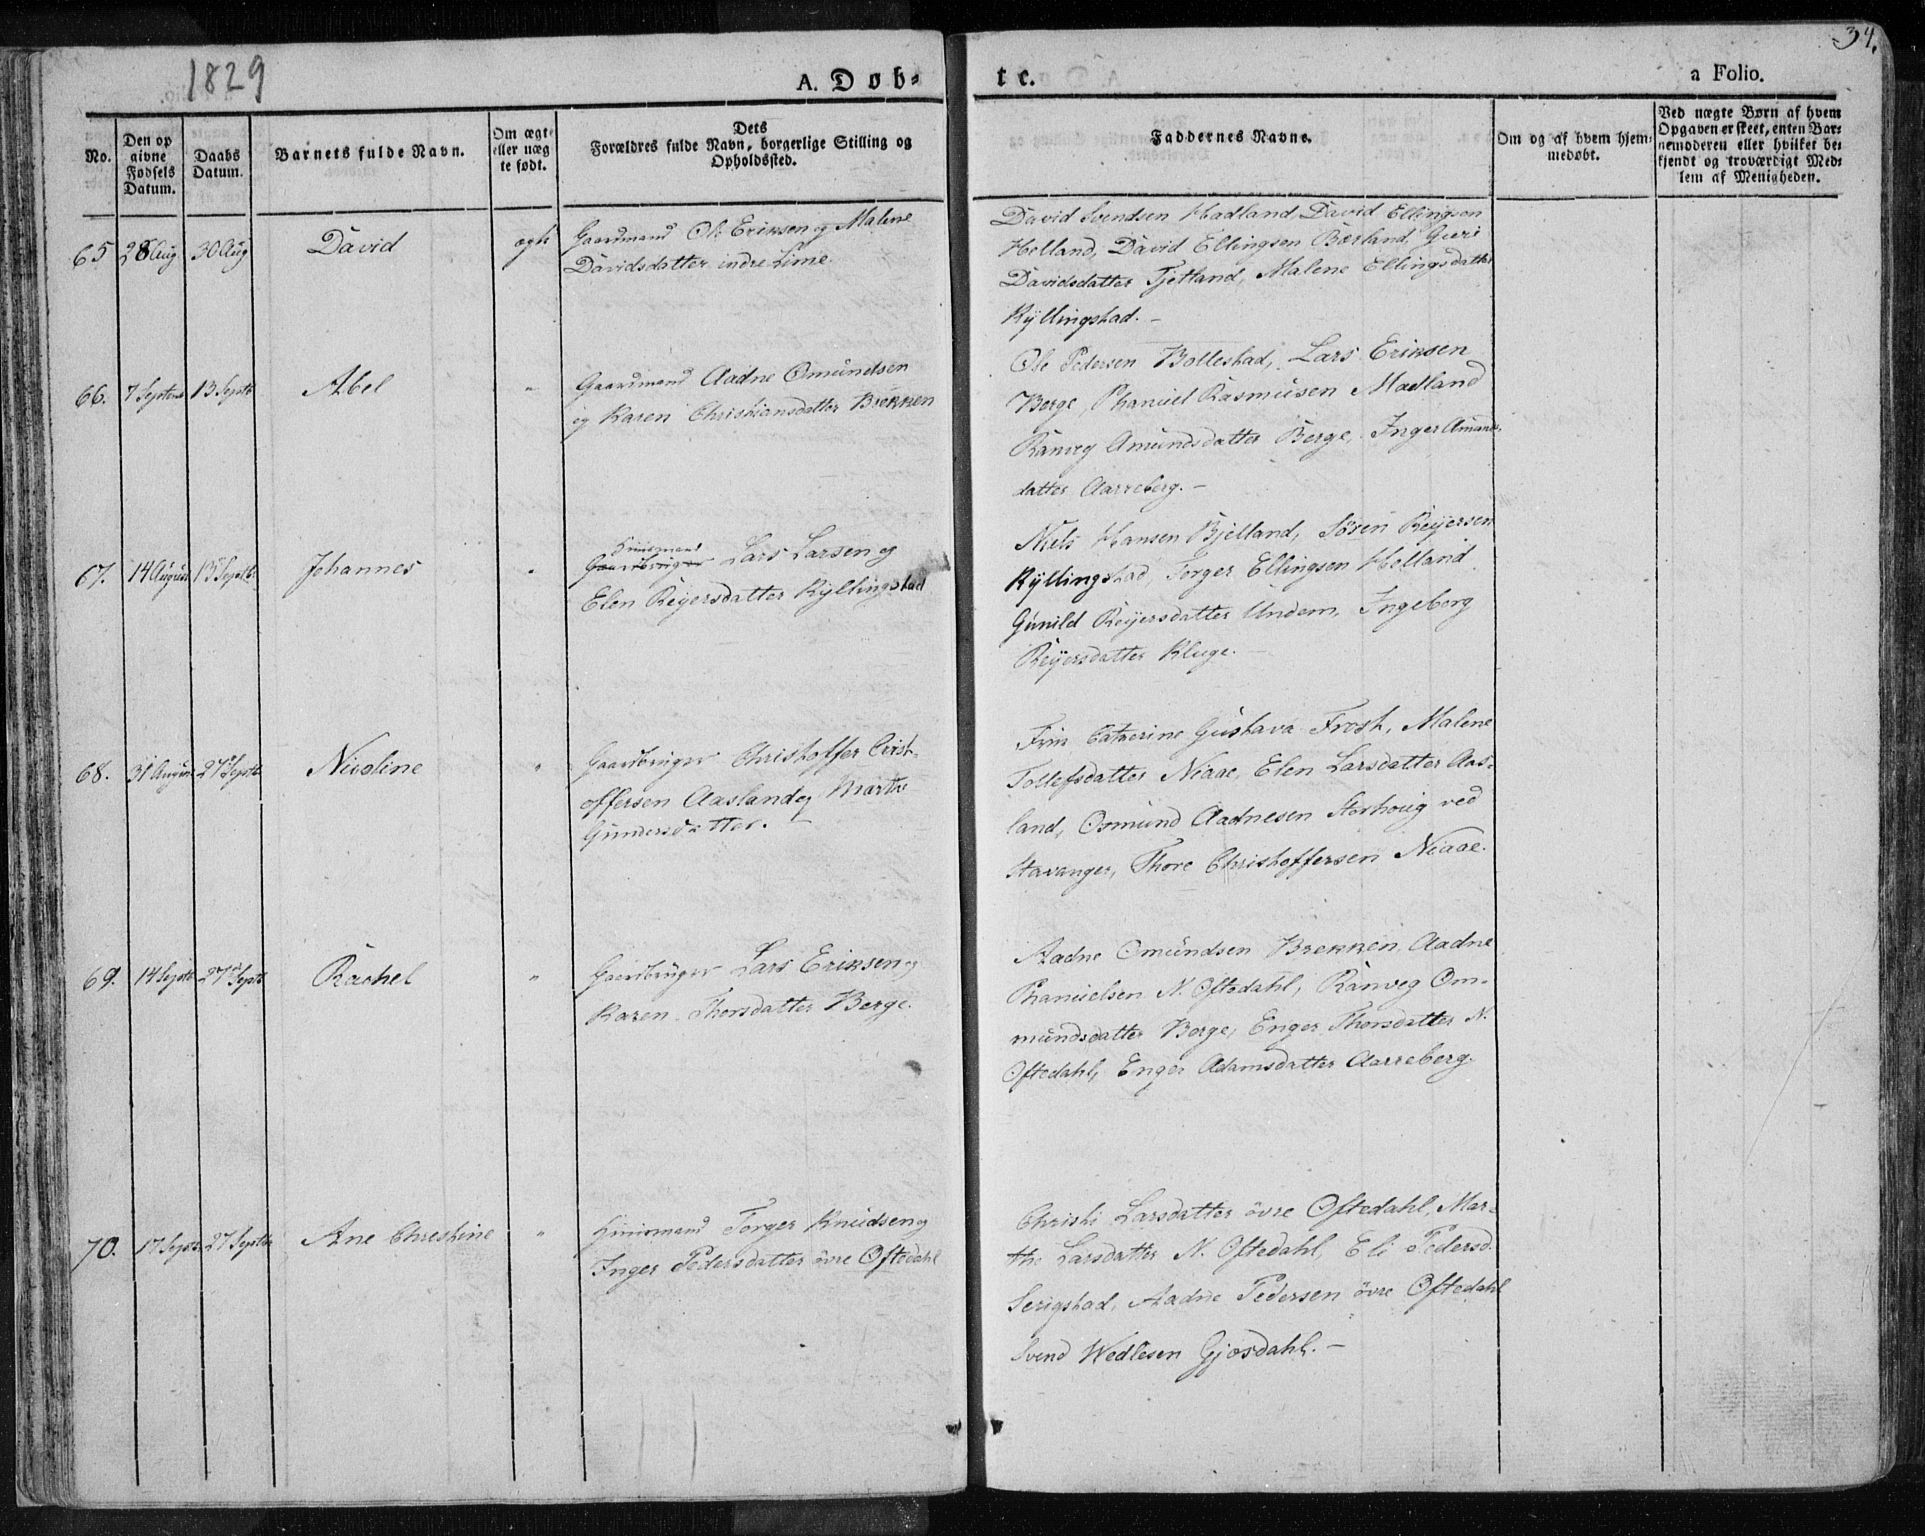 34.
1829
A. Døb-
te.
a Folio.
No.
Den op
givne
Fødsels
Datum.
Daabs
Datum.
Barnets fulde Navn.
Om ægte
eller uæg
te født.
Dets
Forældres fulde Navn, borgerlige Stilling og
Opholdssted.
Faddernes Navne.
Om og af hvem hjem-
medøbt.
Ved uægte Børn af hvem
Opgaven er skeet, enten Bar-
nemoderen eller hvilket be-
kjendt og troværdigt Med-
lem af Menigheden.
65 28 Aug. 30 Aug David ægte Gaardmand Ole Eriksen og Malene
Davidsdatter indre Lime.
David Svendsen Hadland, David Ellingsen
Helland, David Ellingsen Bærland, Guri
Davidsdatter Tjetland, Malene Ellingsdatter
Kyllingstad. –
66. 7 Septemb 13 Septb Abel " Gaardmand Aadne Omundsen
og Karen Christiansdatter Brekken
Ole Pedersen Bollestad, Lars Eriksen
Berge, Phanuel Rasmusen Madland
Ranveg Amundsdatter Berge, Inger Amunds-
datter Aarreberg. –
67. 14 August 13 Septb: Johannes " Huusmand
Gaardbruger Lars Larsen og
Elen Reyersdatter Kyllingstad
Niels Hansen Bjelland, Sören Reyersen
Kyllingstad, Torger Ellingsen Helland
Gunild Reyersdatter Undem, Ingeborg
Reyersdatter Kluge. –
68. 31 August 27 Septb Nicoline " Gaardbruger Christoffer Crist-
offersen Aasland og Marthe
Gundersdatter.
Frue Catherine Gustava Frost, Malene
Tollefsdatter Niaae, Elen Larsdatter Aas-
land, Osmund Aadnesen Storhoug ved
Stavanger, Thore Christoffersen Niaae.
69. 14 Septb 27 Septb Rachel " Gaardbruger Lars Eriksen og
Karen Thorsdatter Berge.
Aadne Omundsen Brekken, Aadne
Phanuelsen N. Oftedahl, Ranveg Om-
mundsdatter Berge, Enger Thorsdatter N.
Oftedahl, Enger Adamsdatter Aarreberg.
70. 17 Septb 27 Septbr Ane Chrestine " Huusmand Torger Knudsen og
Inger Pedersdatter övre Oftedahl
Christi Larsdatter övre Oftedahl, Mar-
the Larsdatter N. Oftedahl, Eli Pedersd.
Serigstad, Aadne Pedersen övre Oftedahl
Svend Wedlesen Gjosdahl. –